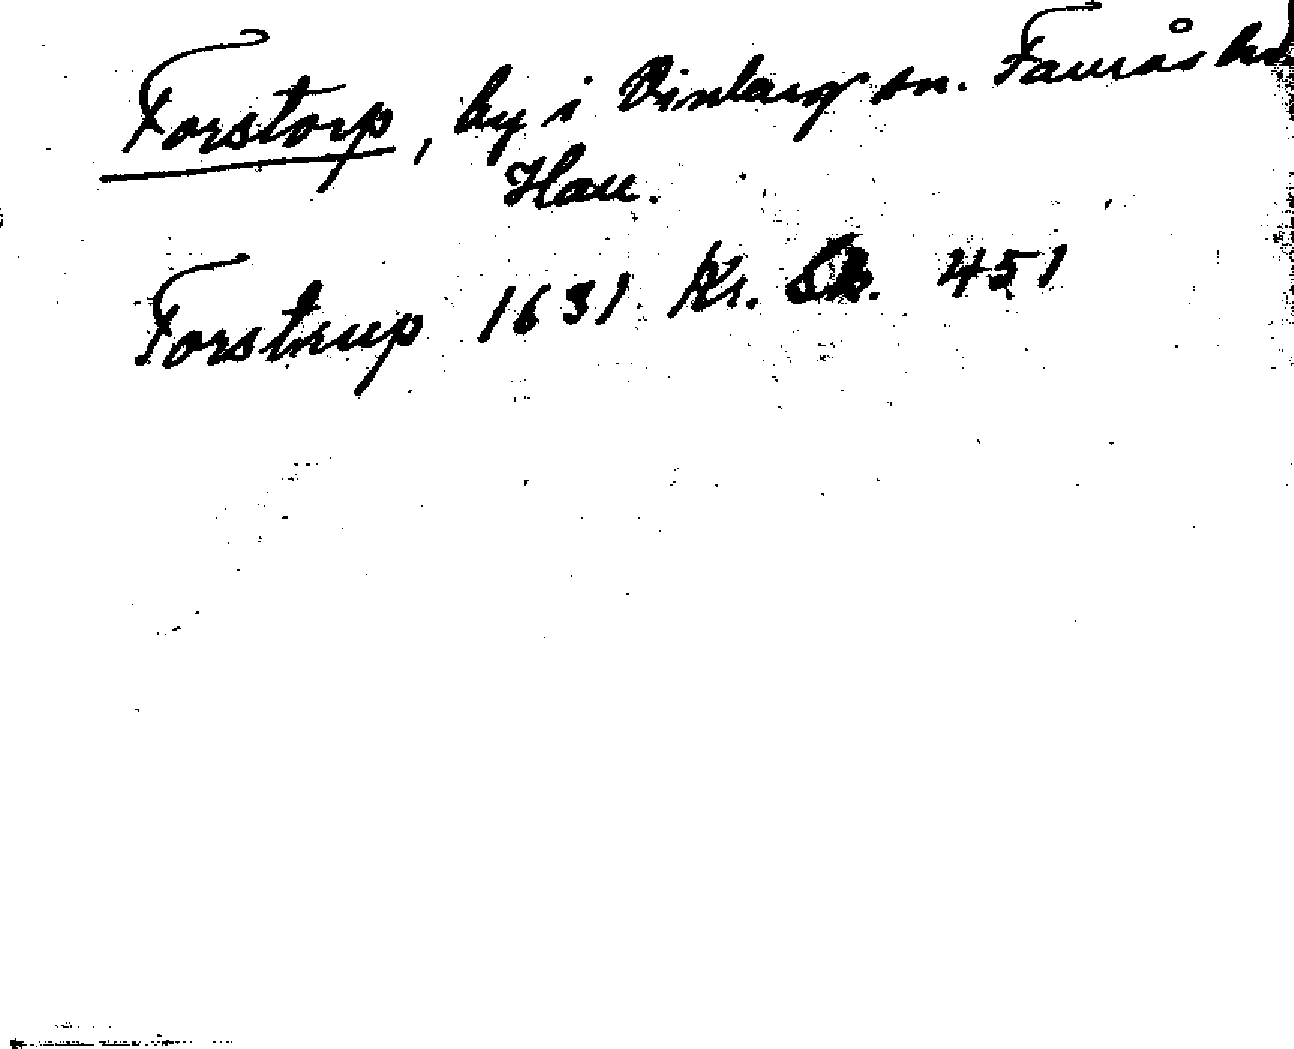 Forstorp, by i Vinbärgs sn. Faurås hd.
Hall.
Forstrup 1631 Kr. Sk. 451